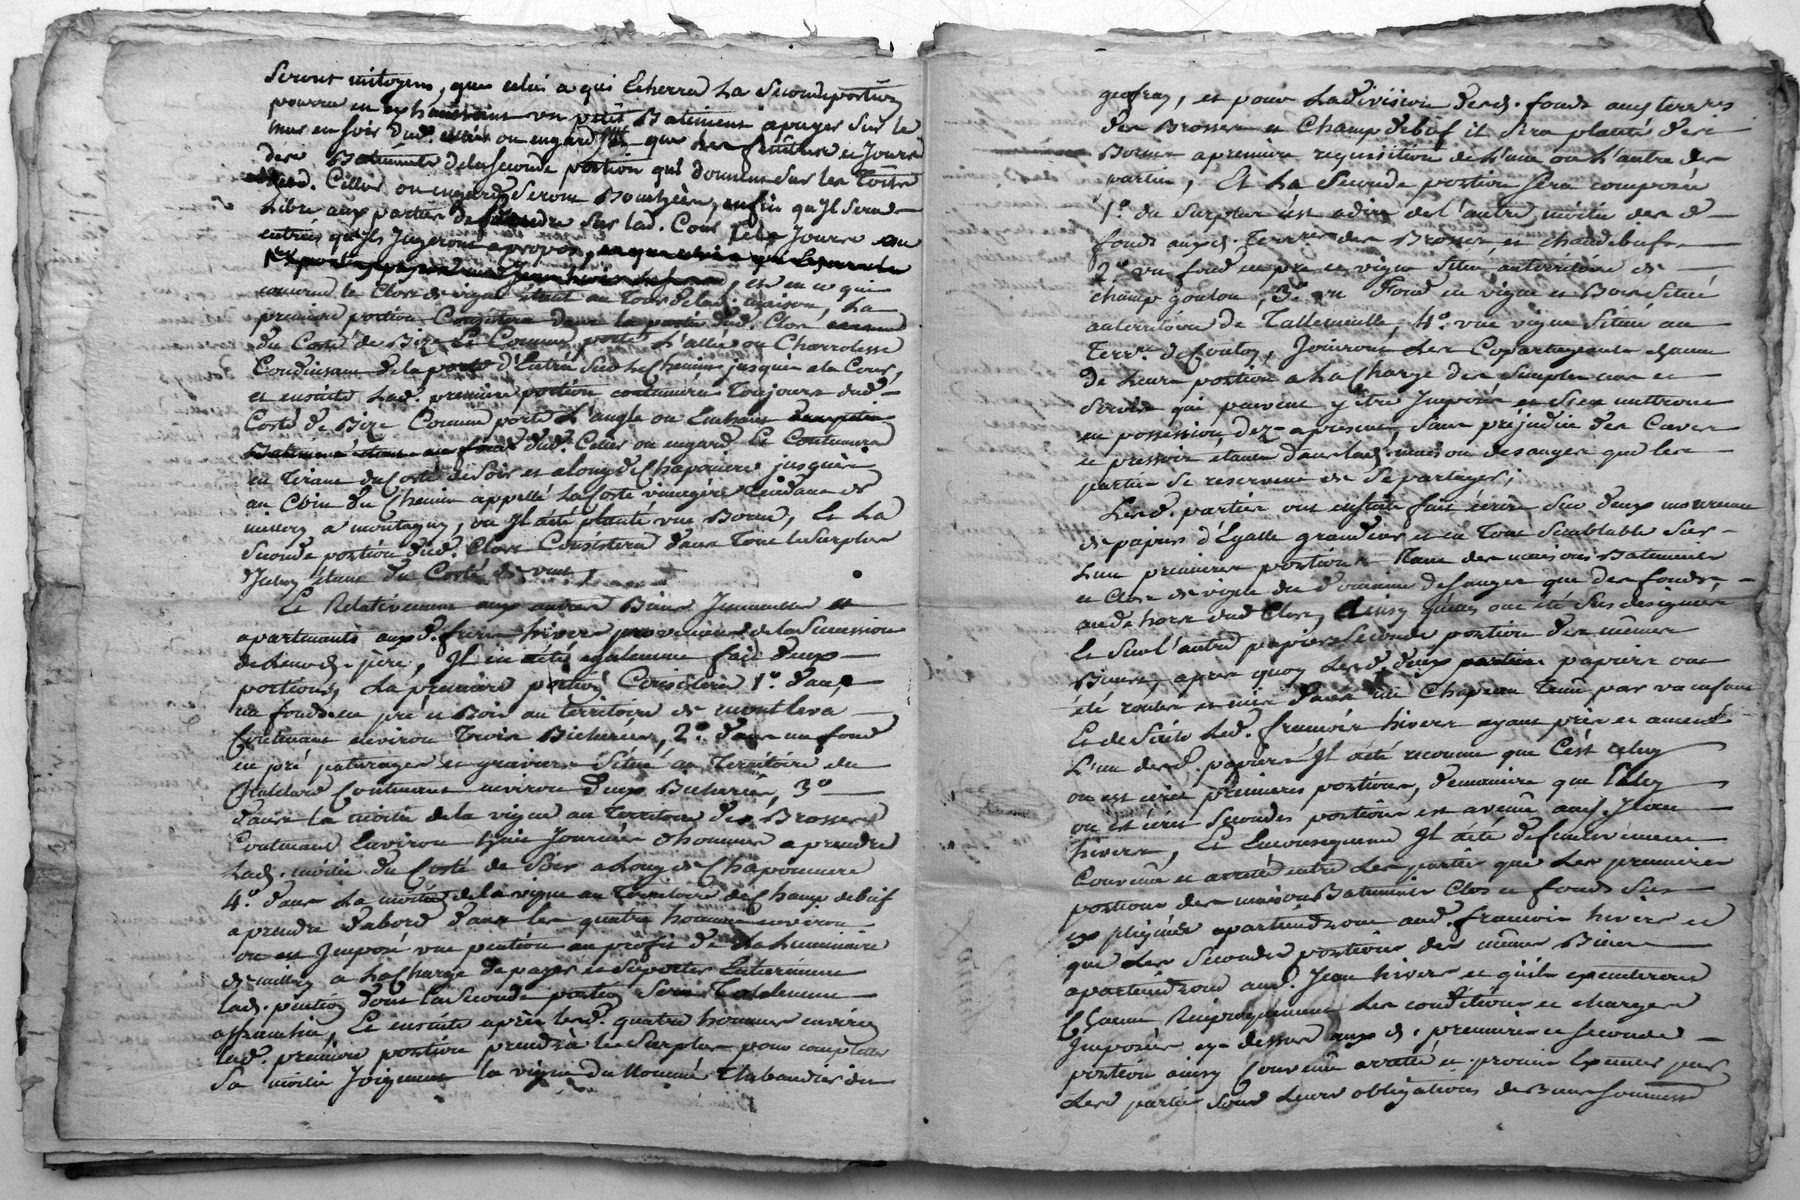 seront mitoyens, que celui a qui Echerra la Seconde portion
pourra en exhaussant un petit Batiment apuyer sur le
mur en soir dud. ou engard que les fenetres et Jours
des Batiments de la seconde portion qui donnent sur les Toits
dud. Cellier ou engard seront Bouchées, enfin qu'Il sera
libre aux parties de prendre sur lad. Cour telle Jours ou
entrées qu'Ils Jugeront apropos,
, et en ce qui
concerne le Clos de vigne étant au Tour de lad. maison, La
premiere portion Consistera dans la partie dud. Clos
du Costé de Bize Le Comme porte L'allée ou Charrotesse
Conduisant de la porte d'Entrée sur le chemin jusqu'a la Cour,
et ensuite Lad. premiere portion continuera Toujours dud.
Costé de Bize Comme porte L'angle ou
dud. Cellier ou engard Et Continuera
en Tirant du Costé de Soir et along de Chaponiere jusqu'a
au Coin du Chemin appellé La Coste Tendant de
millery a montagny, ou Il a été planté une Borne, Et La
Seconde portion dud. Clos Consistera dans Tout le Surplus
d'Icelluy étant du Costé de vent,
Et Relativement aux autres Biens Immeubles et
apartenants auxd. freres hivers provenients de la Succession
de leurd. pere, Il en a été egalement fait deux
portions, La premiere portion Consistera 1.º dans
un fonds en pré et Bois au territoire de montleva
Contenant environ Trois Bicherées, 2.º dans un fond
en pré paturages et graviers Situé au Territoire du
Contenant environ deux Bicherées, 3.º
dans la moitié de la vigne au Territoire des Brosses
Contenant Environ huit Journées d'hommes a prendre
Lad. moitié du Costé de Soir along de Chaponiere
4.º dans La moitié de la vigne au Territoire de Champ debeuf
a prendre d'abord dans les quatre hommes environ
ou est Imposé une pention au profit de La Luminaire
de millery a La Charge de payer et Suporter Entierement
lad. pention dont La Seconde portion Sera Totalement
affranchie, Et ensuite après lesd. quatre hommes environ
lad. premiere portion prendra le Surplus pour completter
Sa moitié Joignant la vigne du Nommé Thibaudier du
geofray, et pour La division desd. fonds aux terr.res
des Brosses et Champ debeuf il Sera planté des
Bornes a premiere requisition de L'une ou L'autre des
parties, Et La Seconde portion Sera composée
1.º du Surplus c'est adire de l'autre moitié des d.
fonds auxd. Terr.res des Brosses et chandebeuf
2.º un fond en pré et vigne situé au territoire de
champ goulon, 3.º un Fond en vigne et Bois Situé
au territoire de Tallemeulle, 4.º une vigne Située au
Terr.re de Couloy, Jouiront Les Copartageants chacun
de Leurs portion a la Charge des Simples cens et
Servis qui peuvent y être Imposés et s'en mettront
en possession dez apresent, Sans préjudice des Caves
et pressoir étants dans lad. maison desanges que les
parties Se reservent de Se partager;
Lesd. parties ont ensuite fait écrire Sur deux morceaux
de papier d'Egalle grandeur et en Tout Semblable Sur
L'un premieres portions Tant des maisons Batiments
et Clos de vigne du domaine desanges que des fonds
au dehors dud Clos, Ainsy qu'elles ont été Sus designées
Et Sur l'autre papier Seconde portion des mêmes
Biens, apres quoy Lesd. deux papiers ont
été roulés et mis dans un Chapeau Tenu par un enfant
Et de Suite Led. françois hivers ayant pris et amené
L'un desd. papiers Il a été reconnu que C'est celuy
ou est écrit premieres portions, demaniere que Celuy
ou est écrit Secondes portions est avenu aud. Jean
hivers, Et Enconsequence Il a été definitivement
Convenu et arretté entre Les parties que Les premieres
portions des maison Batiments Clos et fonds Sus
expliqués apartiendront aud. françois hivers et
que Les Secondes portions des mêmes Biens
apartiendront aud. Jean hivers et qu'ils executeront
Chacun Reciproquement Les conditions et charges
Imposées cy-dessus auxd. premiere et Seconde
portion ainsy Convenu arretté et promis Executer par
Lesd parties sous Leurs obligations de Biens Soumissions